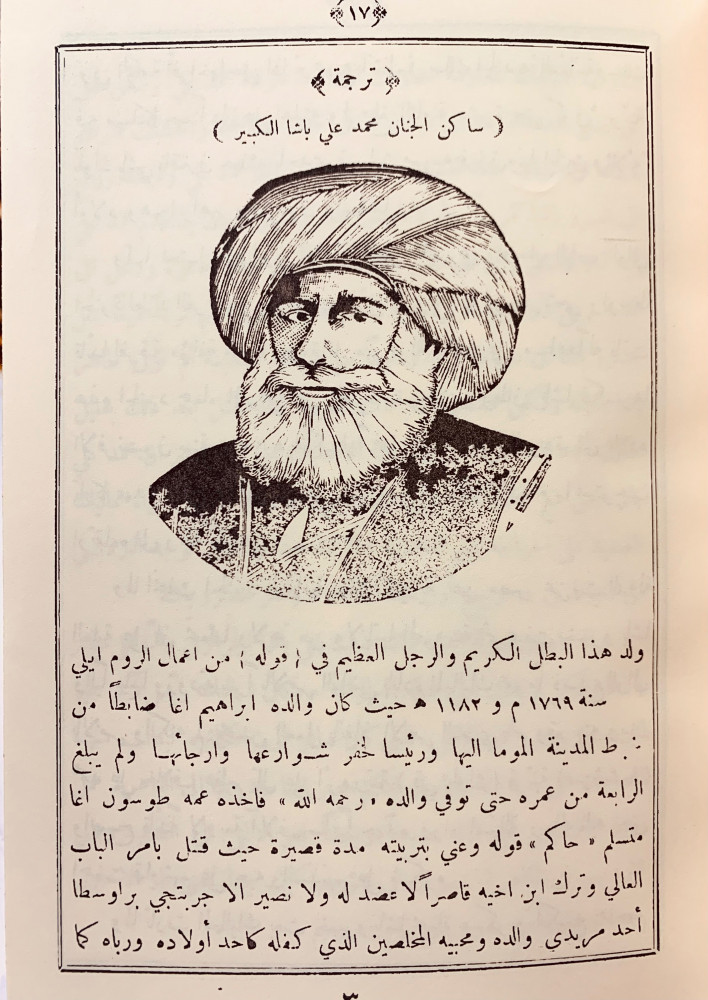 ﴿١٧﴾
﴿ ترجمة ﴾
( ساكن الجنان محمد علي باشا الكبير )
ولد هذا البطل الكريم والرجل العظيم في ( قوله ) من اعمال الروم ايلي
سنة ١٧٦٩ م و ١١٨٢ ه حيث كان والده ابراهيم اغا ضابطاً من
المدينة الموما اليها ورئيسا لخفر شوارعها وارجائها ولم يبلغ
الرابعة من عمره حتى توفي والده « رحمه الله » فاخذه عمه طوسون اغا
متسلم « حاكم » قوله وعني بتربيته مدة قصيرة حيث قتل بامر الباب
العالي وترك ابن اخيه قاصراً لا عضد له ولا نصير الا جربتجي براوسطا
أحد مريدي والده ومحبيه المخلصين الذي كفله كاحد أولاده ورباه كما
٣